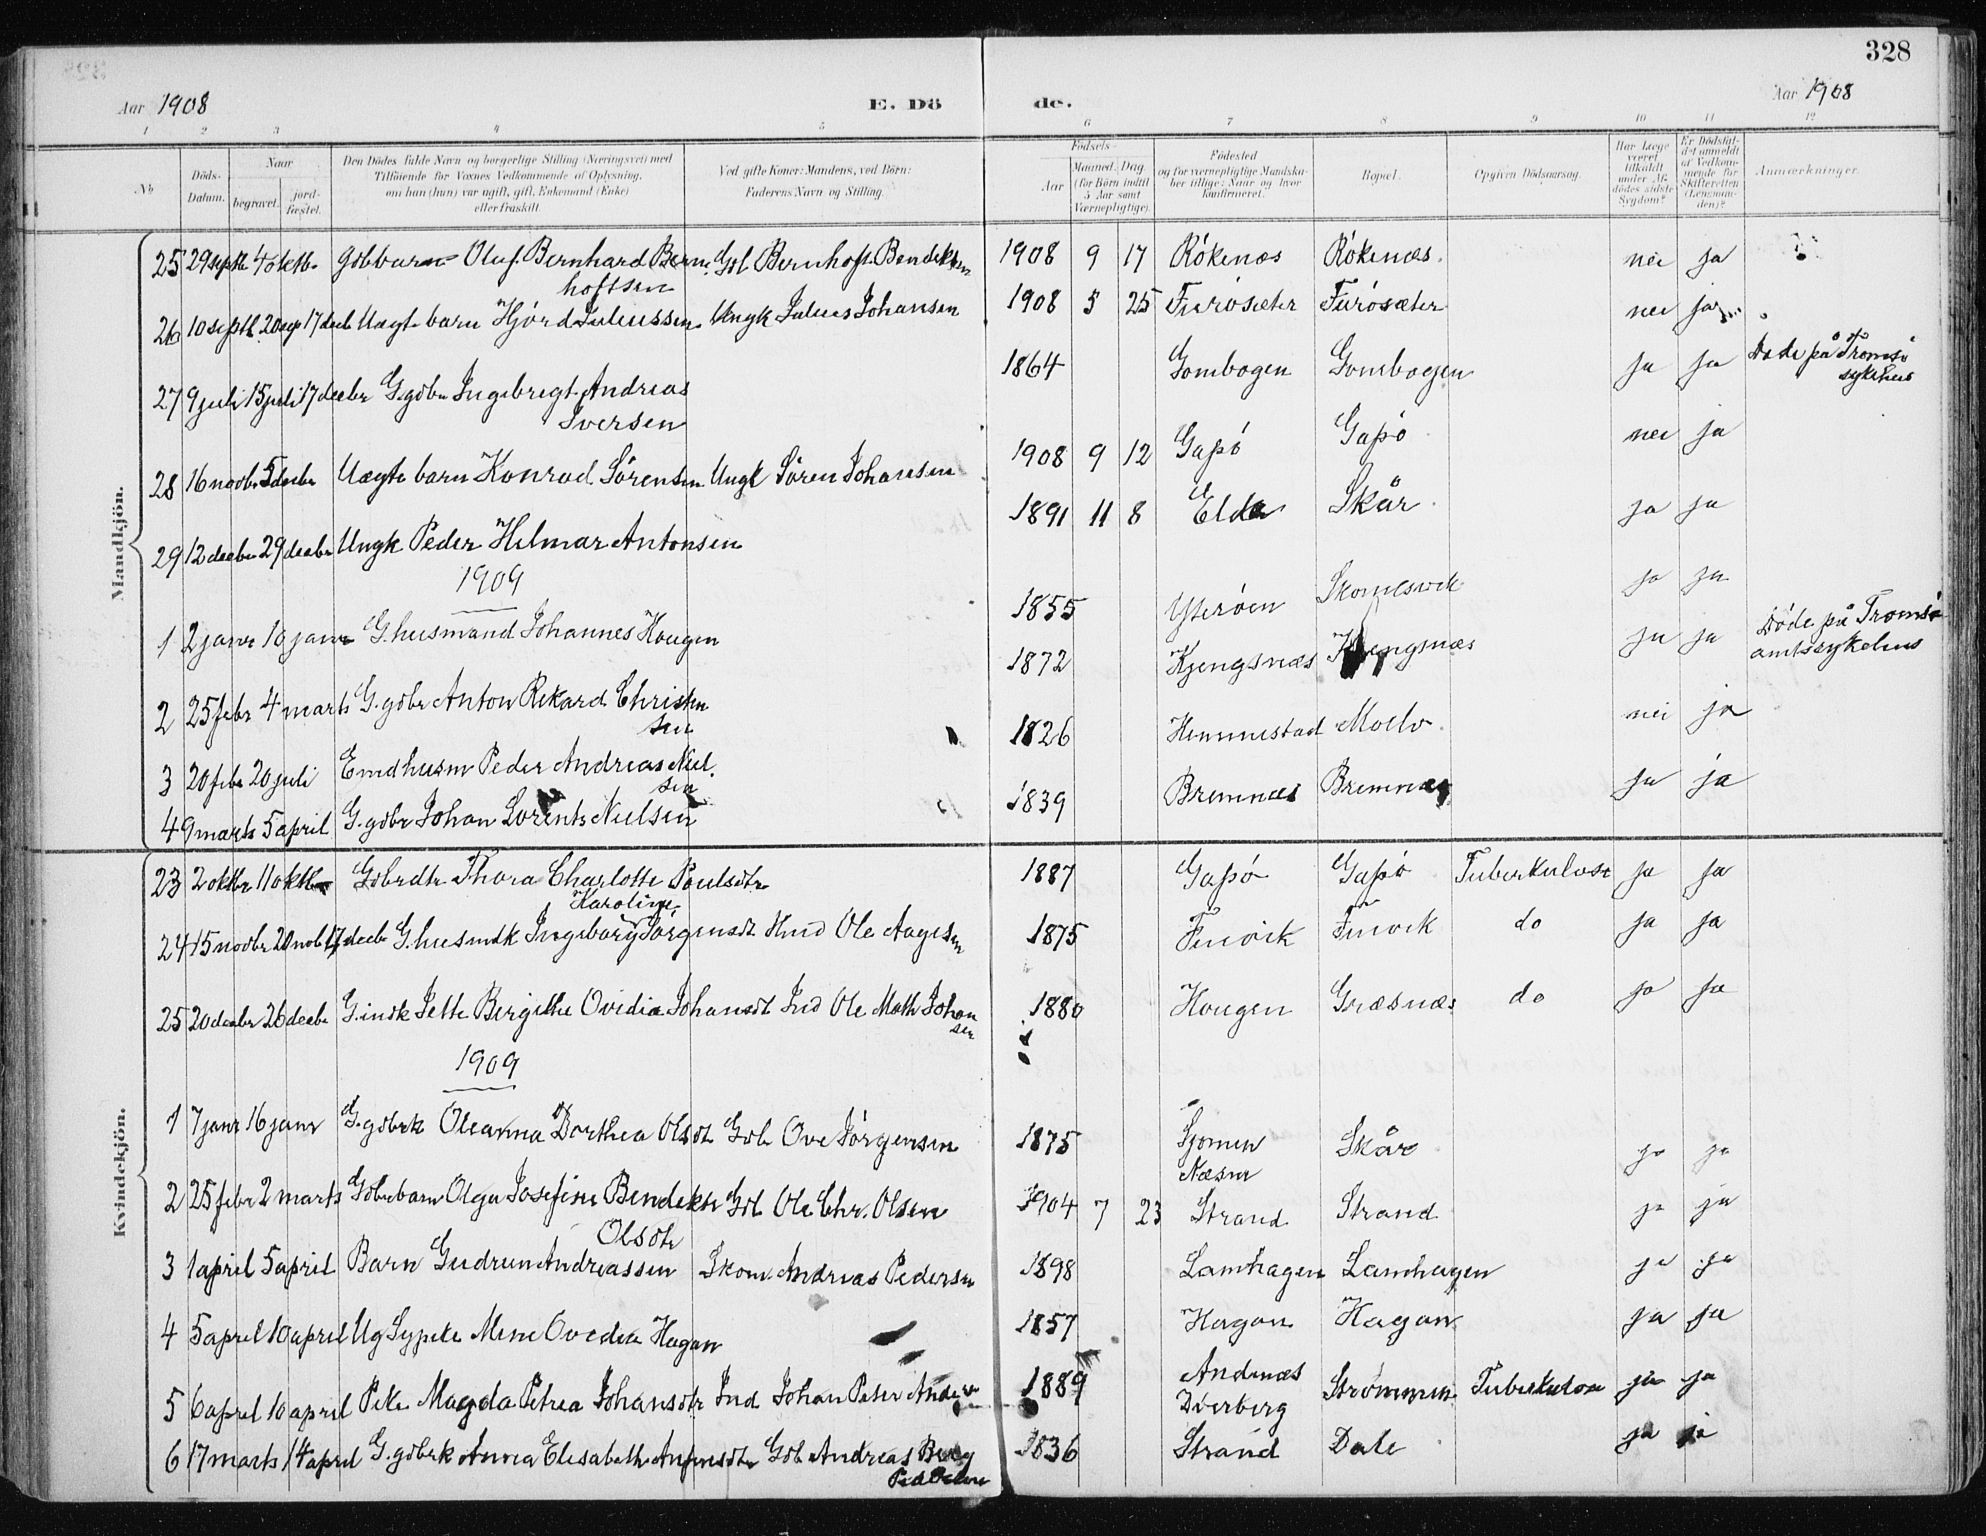 328
Aar 1908 E. Dö de. Aar 1908
1 2 3 4 5 6 7 8 9 10 11 12
No Döds-Datum. Naar begravet. jord-fæstet. Den Dödes fulde Navn og borgerlige Stilling (Næringsvei) med Tilföiende for Voxnes Vedkommende af Oplysning, om han (hun) var ugift, gift, Enkemand (Enke) eller fraskilt. Ved gifte Koner: Mandens, ved Börn: Faderens Navn og Stilling. Födsels- Aar Maaned. Dag. (for Börn indtil 5 Aar samt Værnepligtige). Födested og for værnepligtige Mandskaber tillige: Naar og hvor konfirmeret. Bopæl. Opgiven Dödsaarsag. Har Læge været tilkaldt under Afdödes sidste Sygdom? Er Dödsfaldet anmeldt af Vedkommende for Skifteretten (Lensmanden)? Anmærkninger.
Mandkjön.
25 29septb 4oktbr Gdbbarn Oluf Bernhard Bern Gbl Bernhoft Bendiksen 1908 9 17 Rókenæs Rókenæs. nei ja
hoftsen
26 10septb 20sep 17decb Uægte barn Hjórd Juliussen Ungk Julius Johansen 1908 5 25 Furósæter Furósæter nei ja
27 9juli 15juli 17decbr G.gdbr Ingebregt Andreas 1864 Gombogen Gombogen ja ja Døde på Tromsö
Iversen sykehus
28 16novbr 5decbr Uægte barn Konrad Sörensen Ungk Sören Johansen 1908 9 12 Gapó Gapó nei ja
29 12decbr 29decbr Ungk Peder Hilmar Antonsen 1891 11 8 Elde Skår ja ja
1909
1 2janr 16janr G.husmand Johannes Hougen 1855 Ytterøen ja ja
2 25febr 4 marts G.gdbr Anton Rikard Christen 1872 Kjengsnæs Kjengsnæs ja ja Döde på Tromsö
sen amtssykehus
3 20febr 20juli Emdhusm Peder Andreas Niel. 1826 Hemmestad Moelv. nei ja
sen
4 9marts 5april G.gdbr Johan Lorents Nielsen 1839 Bremnæs Bremnæs ja ja
Kvindekjön.
23 2oktbr 11oktbr Gdbrdtr Thora Charlotte Poulsdtr 1887 Gapó Gapó Tuberkulose ja ja
Karoline
24 15novbr 20nob 17decbr G.husmdk Ingeborg Jörgensdt Hmd Ole Aagesen 1875 Finvik Finvik do ja ja
25 20decbr 26decbr G.indk Jette Bergitte Ovidia Johansdt Ind Ole Math Johan 1880 Hougen Græsnæs do ja ja
sen
1909
1 7janr 16janr G.gdbrk Oleanna Dorthea Olsdt Gdb Ove Jörgensen 1875 Skår ja ja
Næsm
2 25febr 2 marts Gdbrbarn Olga Josefine Bendikte Gdb Ole Chr. Olsen 1904 7 23 Strand Strand ja ja
Olsdtr
3 1april 5april Barn Gudrun Andreassen Skom. Andreas Pedersen 1898 Lamhagen Lamhagen ja ja
4 5april 10april Ug Sypike Mine Ovedia Hagan 1857 Hagan Hagan ja ja
5 6april 10april Pike Magda Petrea Johansdtr Ind Johan Peter Andersen 1889 Andenæs Strömmen Tuberkulose ja ja
Dverberg
6 17marts 14april G.gdbrk Anna Elisabeth Gdb Andreas Berg 1836 Strand Dale ja ja